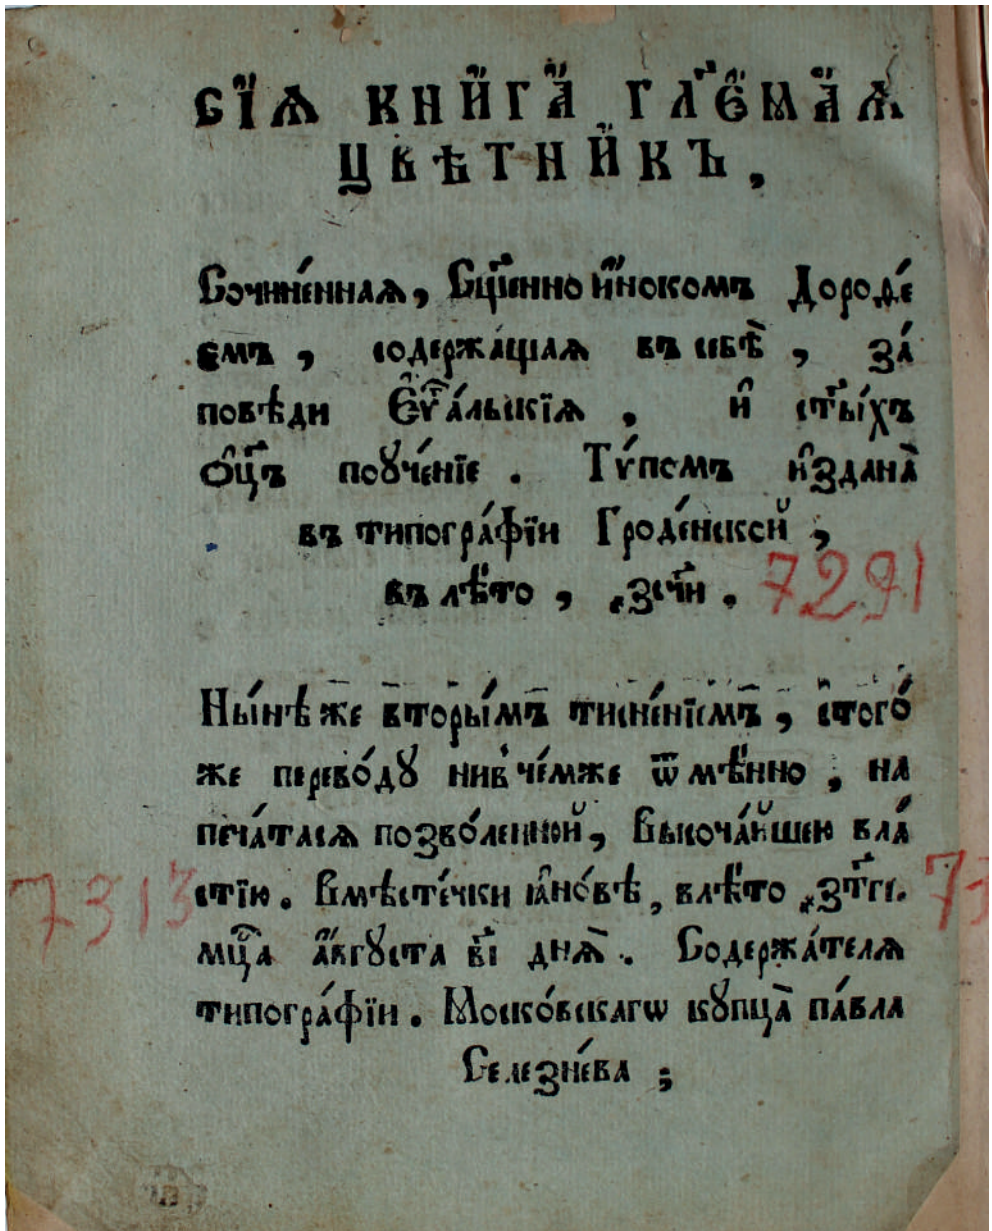 СЇѦ КНИ́ГА ГЛ҃ЕМАѦ
ЦВѢТНИ́КЪ,
Сочине́ннаѧ, Сщ҃енно и҆́нокомъ Дороѳе́
емъ, содержа́щаѧ въ себѣ̀, за́
повѣди Е҆ѵⷢ҇а́льскїѧ, и҆ ст҃ы́хъ
ѻ҆ц҃ъ поꙋче́нїе. Тѵ́помъ и҆здана̀
въ типогра́фїи Гроде́нской,
въ лѣ́то, ҂зсч҃и. 7291
Ны́нѣ же вторы́мъ тисне́нїемъ, стого́
же перево́дꙋ нив̾че́мже ѿмѣ́нно, на
печа́тасѧ позво́ленной, Высоча́йшею вла́
стїю. Вмѣсте́чки ꙗ҆но́вѣ, влѣ́то ҂зт҃гі.
7313
73
мц҃а а҆́вгꙋста в҃і днѧ̀. Содержа́телѧ
типогра́фїи. Моско́вскагѡ кꙋпца̀ па́вла
Селезне́ва;